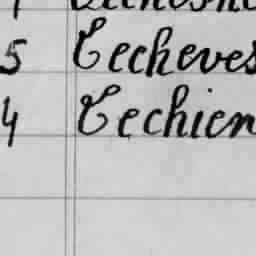 5 Techeves
4 Techien